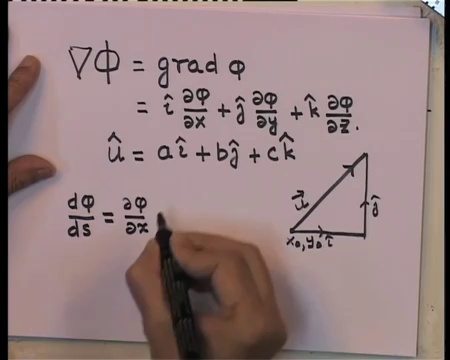 ∇Φ = grad φ
= î ∂φ/∂x + ĵ ∂φ/∂y + k̂ ∂φ/∂z.
û = aî + bĵ + ck̂
dφ/ds = ∂φ/∂x
u⃗
ĵ
x₀, y₀ î